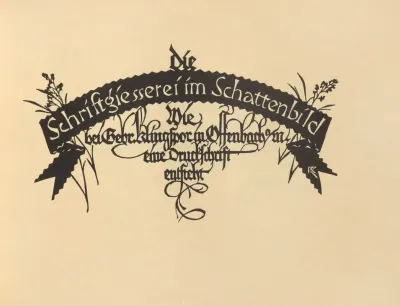 Die
Schriftgiesserei im Schattenbild
Wie
bei Gebr. Klingspor in Offenbach a/m
eine Druckschrift
entsteht